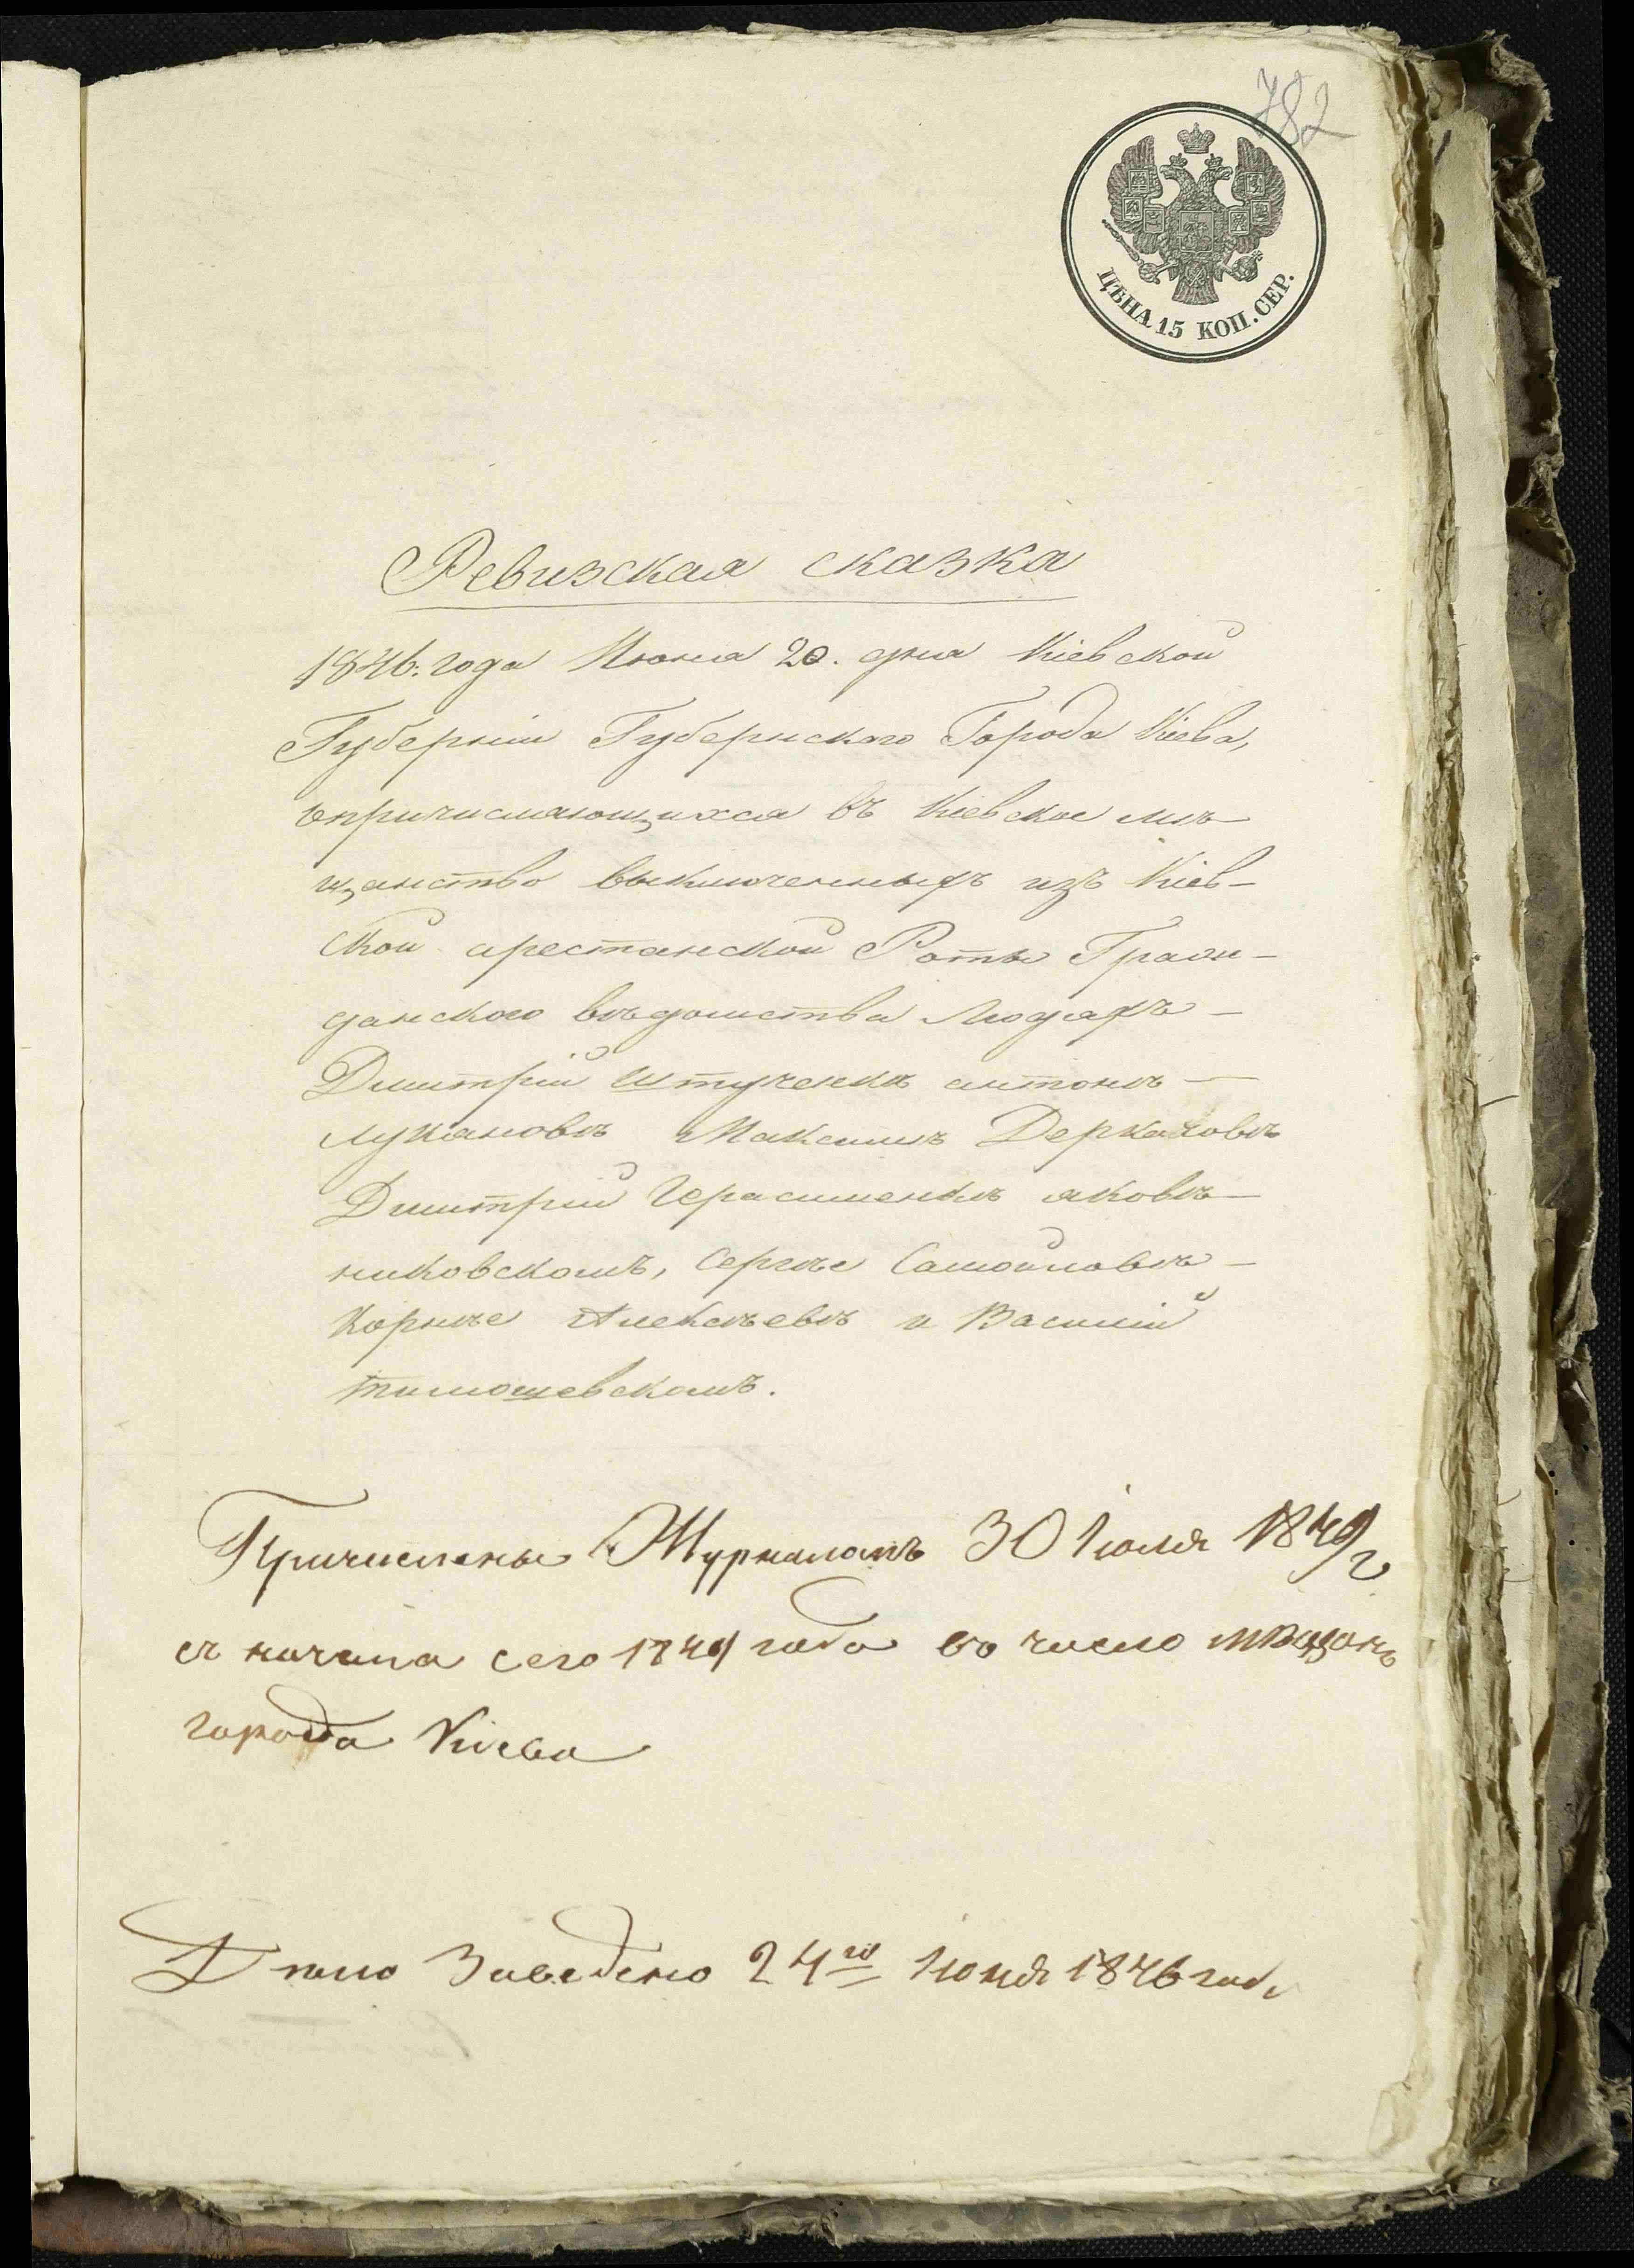 782
ЦѢНА 15 КОП. СЕР.
Ревизская сказка
1846: года Июня 20. дня Кіевской
Губерніи Губернского Города Кіева,
опричисляющихся въ Кіевское мѣ
щанство выключенныхъ изъ Кіев-
ской арестанской Роты Граж-
данского вѣдомства Людяхъ -
Дмитрій Штученкѣ антонѣ -
Лукановѣ Максимѣ Деркачовѣ
Дмитрій Герасименкѣ яковѣ -
никовскомъ, Сергѣе Самойловѣ -
Корнѣе Алексѣевѣ и Василій
тимошевскомъ.
Причислены Журналомъ 30 Іюля 1849 г
съ начала сего 1849 года въ число мѣщанъ
города Кіева
Дѣло Заведено 24го Іюня 1846 года